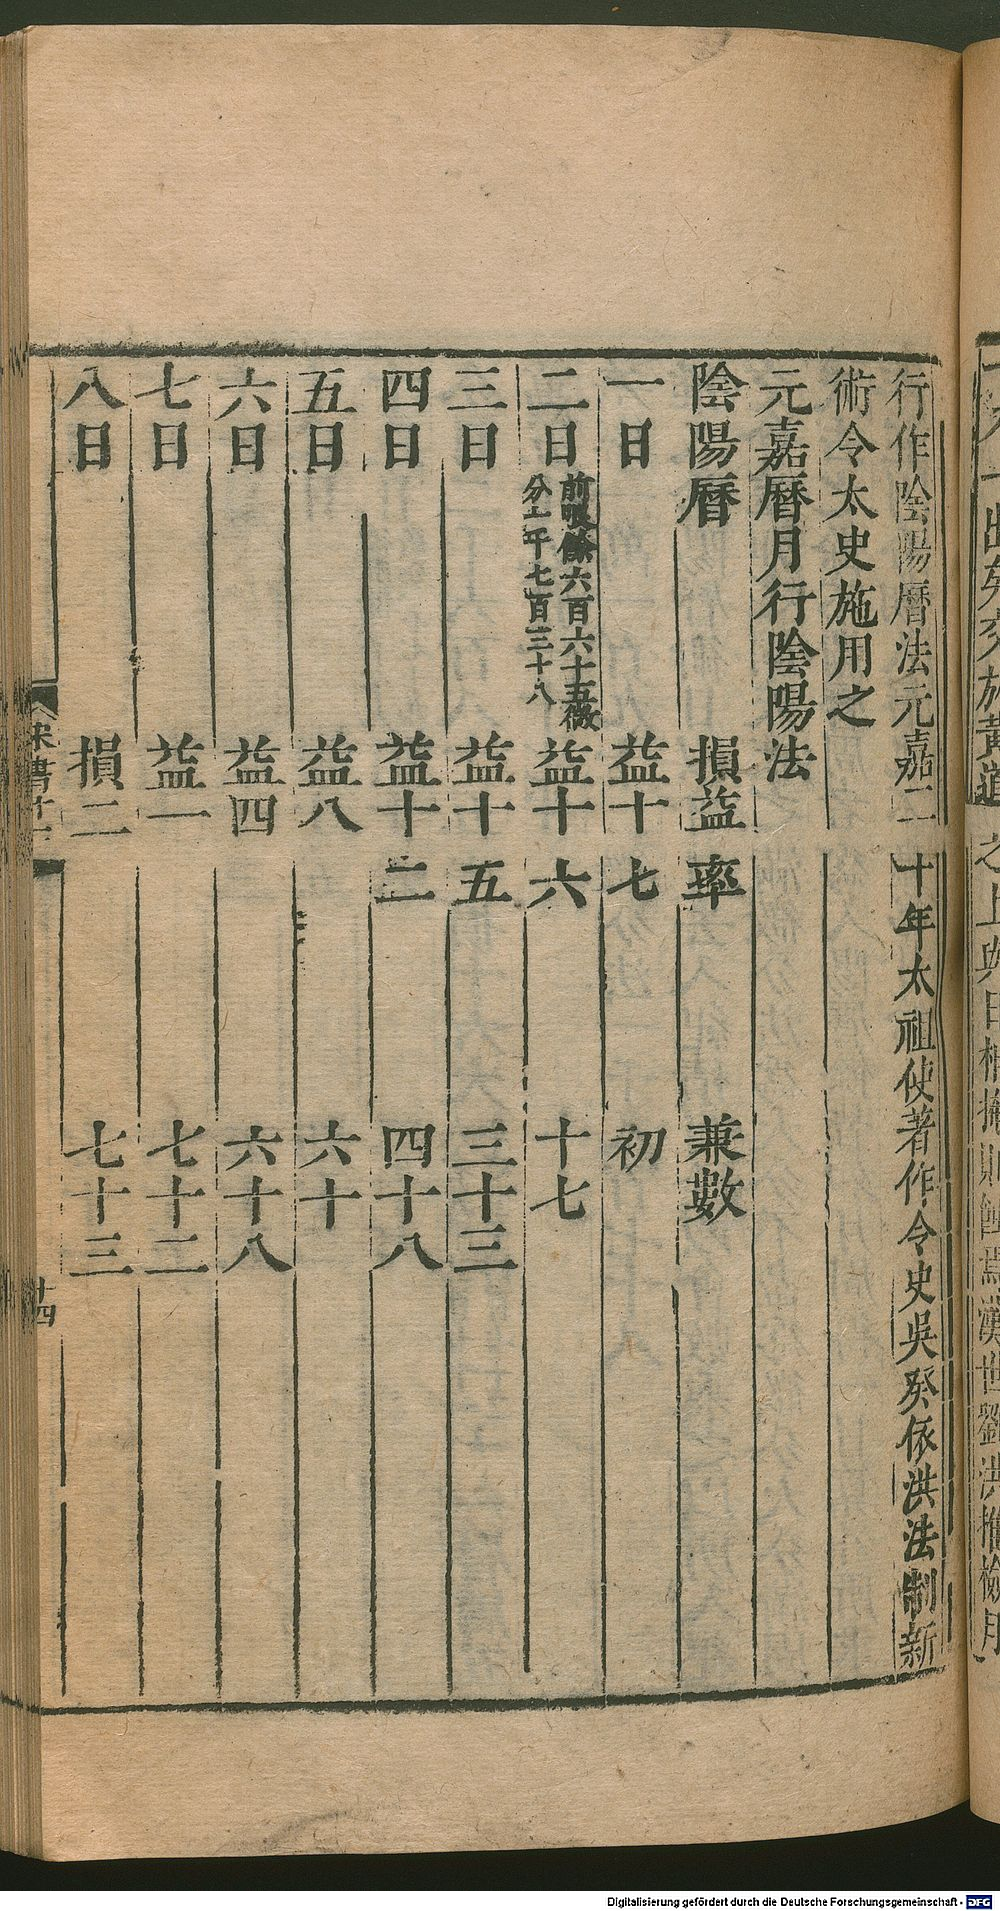 行作陰陽曆法元嘉二十年太祖使著作令史吳癸依洪法制新
術令太史施用之
元嘉曆月行陰陽法
陰陽曆 損益率 兼數
一日 益十七 初
二日 前限餘六百六十五微分一千七百三十八 益十六 十七
三日 益十五 三十三
四日 益十二 四十八
五日 益八 六十
六日 益四 六十八
七日 益一 七十二
八日 損二 七十三
宋書十二
十四
Digitalisierung gefördert durch die Deutsche Forschungsgemeinschaft - DFG